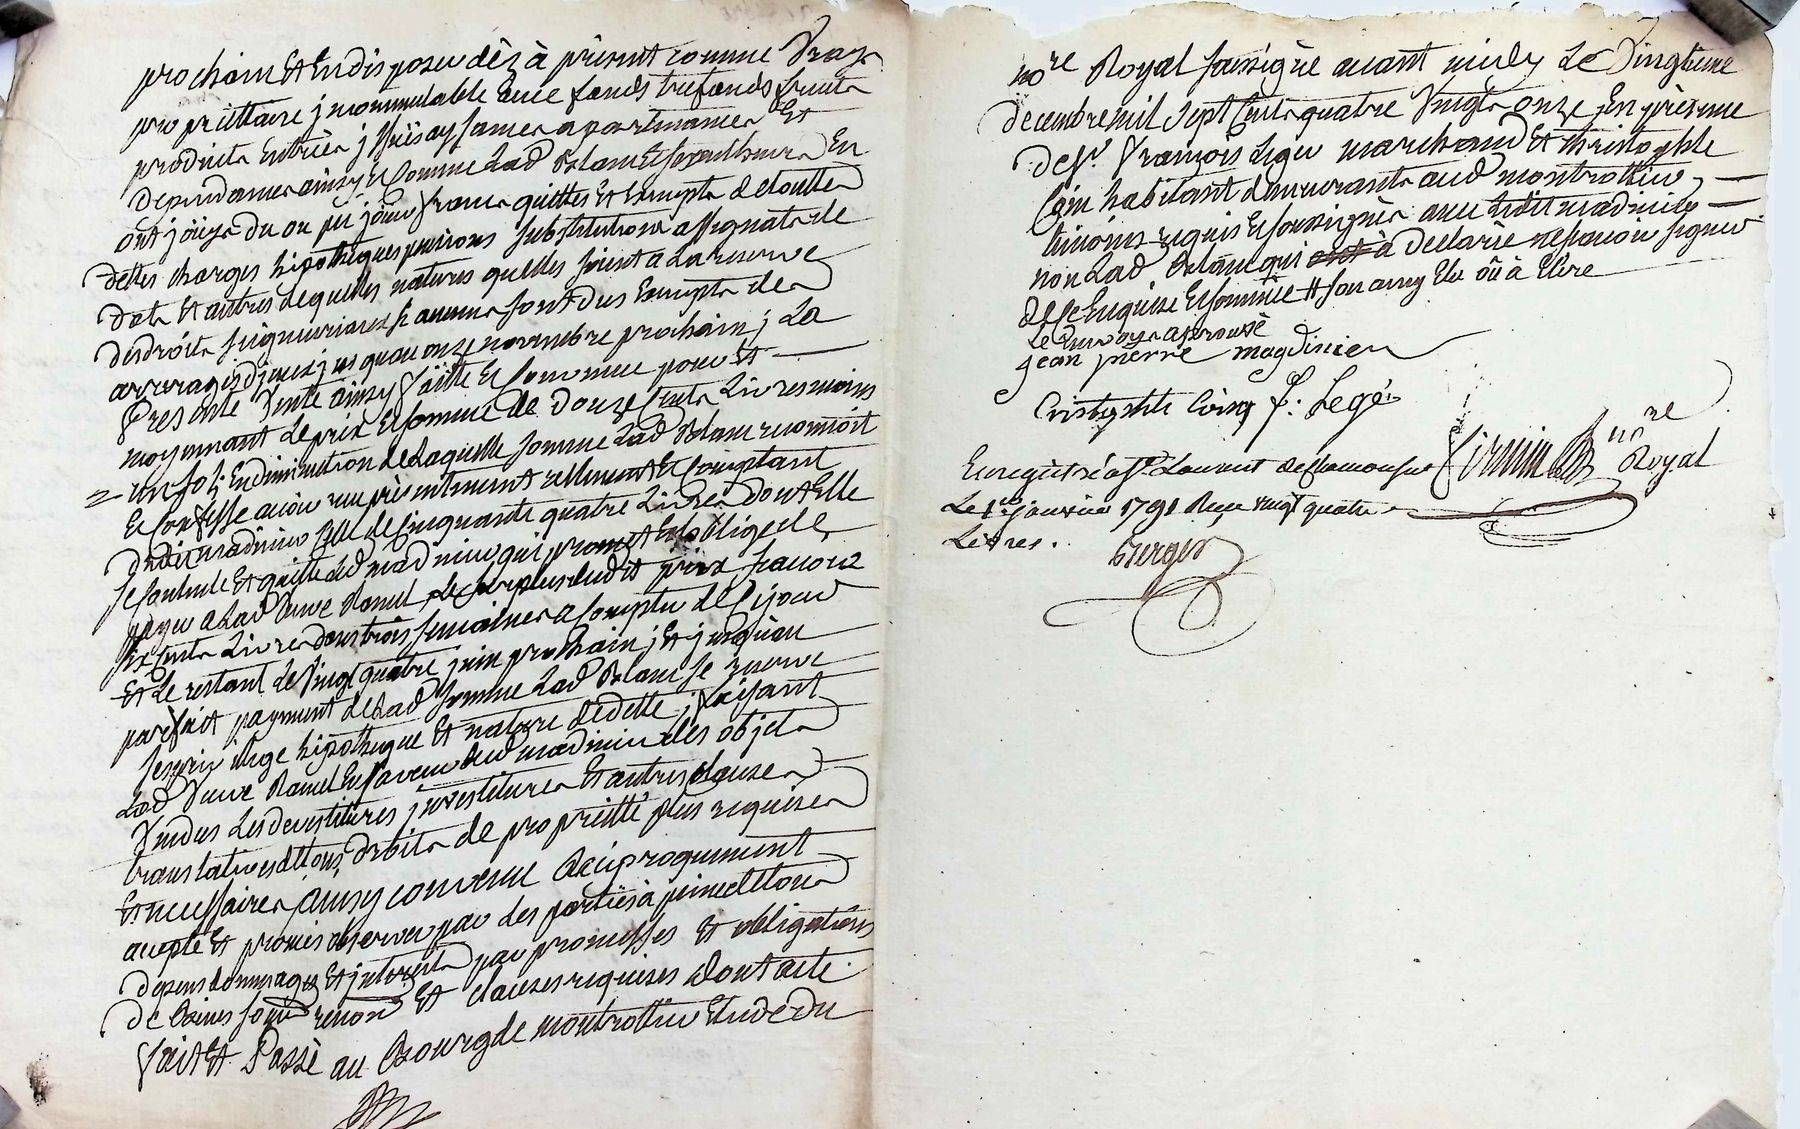 prochain Et En disposer dès à présent comme Vray
propriettaire jncommutable avec fonds trefonds fruits
produits Entrées jssües aysances apartenances Et
dependances ainsy Comme Lad. En
ont jöüys du ou pu jöüir francs quittes Et Exempts de touttes
dettes charges hipotheques pensions substitutions assignats de
dots Et autres de quelles natures quelles soient a La reserve
des droits seigneuriaux si aucuns sont dus Exempts des
arrerages d'jceux jusquau onze novembre prochain; La
Presente Vente ainsy faitte Et Convenue pour Et
moyennant Le prix Et somme de Douze Cents Livres moins
un sol; En diminution de Laquelle somme Lad. reconnoit
Et Confesse avoir reçu présentement rellement Et Comptant
dudit madinier Celle de Cinquante quatre Livres dont Elle
se Contente Et quitte led. madinier qui promet Et oblige de
payer a Lad. Veuve Le surplus dudit prix sçavoir
six Cents Livres dans trois semaines a Compter de Cejour
Et Le restant Le Vingt quatre juin prochain; Et jusquau
parfait payment de Lad. somme Lad. se reserve
Le privilege hipotheque Et nature de dette; faisant
Lad. Veuve En faveur dud. madinier des objets
Vendus Les devestitures jnvestitures Et autres clauses
translatives de tous droits de propriétté plus requises
Et necessaires ainsy convenu reciproquement
accepté Et promis observer par des parties à peine de tous
depens dommages Et jnterests par promesses Et obligations
de biens renon. Et clauses requises dont acte.
fait Et Passé au Bourg de montrottier Etude du
no.re Royal soussigné avant midy Le Vingt
decembre mil sept Cents quatre Vingts onze En présence
de s.r françois Leger marchand Et christophle
Coin habitant demeurants aud. montrottier
témoins requis Et soussignés avec Ledit madinier
non Lad. qui à déclaré ne sçavoir signer
de ce Enquise Et sommée
Le Renvoy approuvé
jean pierre magdinier
Cristophle Coing f: Legé
no.re Royal
Enregistré a s.t Laurent de chamousset
Le janvier 1791 Reçu vingt quatre
Livres.
Berger